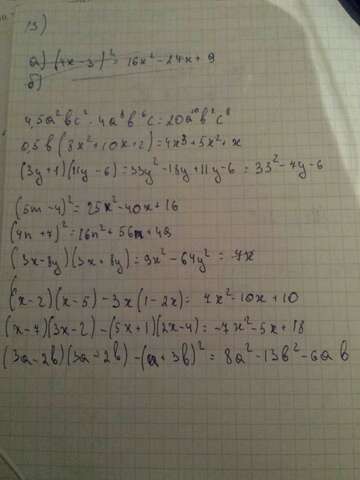 13)
а) (4x-3)² 16x²-24x+9
б)
4,5a²bc²·4a⁸b⁶c=20a¹⁰b⁷c³
0,5x(8x²+10x+2)=4x³+5x²+x
(3y+1)(11y-6)=33y²-18y+11y-6=33²-7y-6
(5m-4)²=25x²-40x+16
(4n+7)²=16n²+56n+49
(3x-8y)(3x+8y)=9x²-64y²=-7x
(x-2)(x-5)-3x(1-2x)=7x²-10x+10
(x-4)(3x-2)-(5x+1)(2x-4)=-7x²-5x+18
(3a-2b)(3a-2b)-(a+3b)²=8a²-13b²-6ab